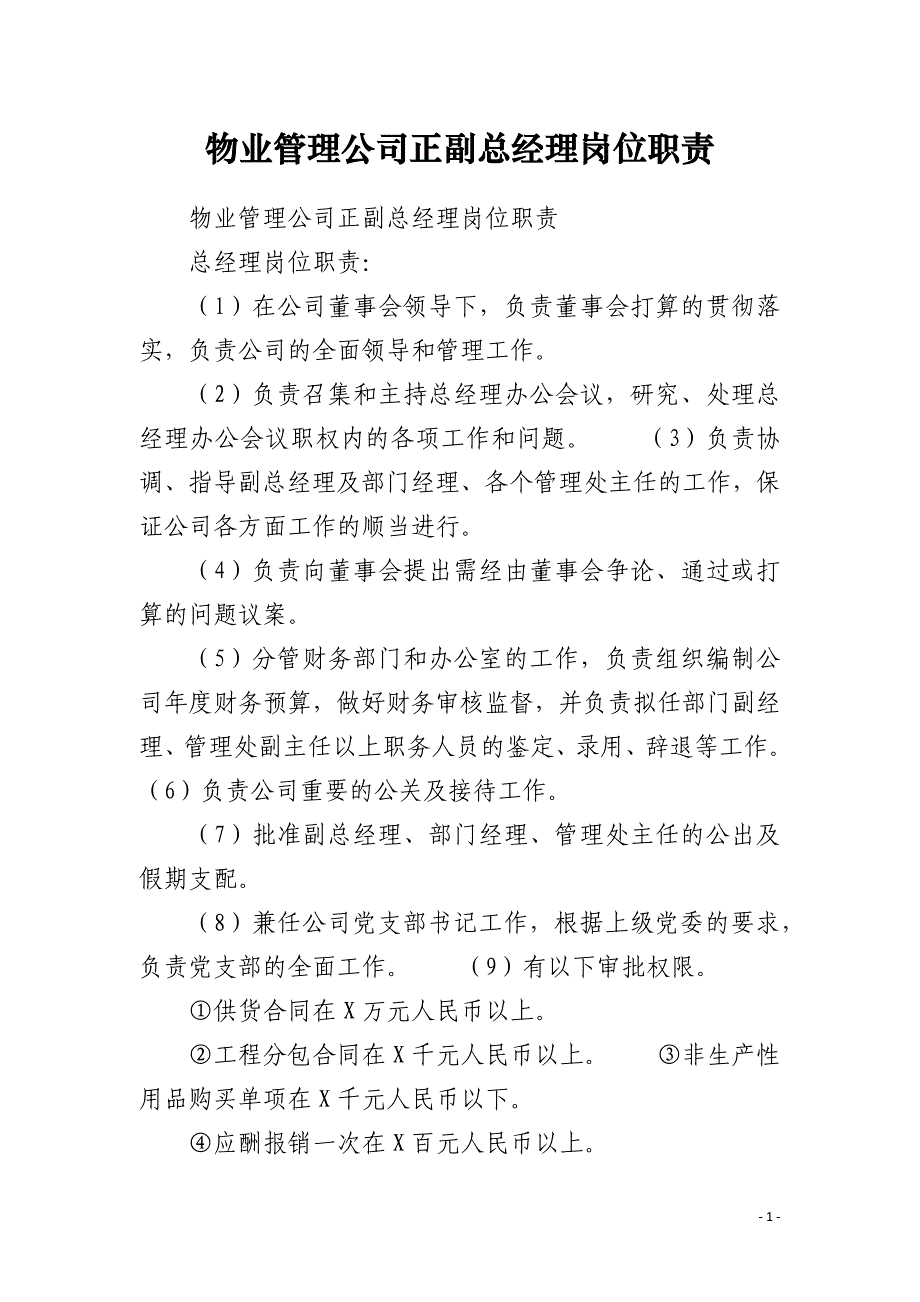 物业管理公司正副总经理岗位职责
物业管理公司正副总经理岗位职责
总经理岗位职责：
（1）在公司董事会领导下，负责董事会打算的贯彻落
实，负责公司的全面领导和管理工作。
（2）负责召集和主持总经理办公会议，研究、处理总
经理办公会议职权内的各项工作和问题。 （3）负责协
调、指导副总经理及部门经理、各个管理处主任的工作，保
证公司各方面工作的顺当进行。
（4）负责向董事会提出需经由董事会争论、通过或打
算的问题议案。
（5）分管财务部门和办公室的工作，负责组织编制公
司年度财务预算，做好财务审核监督，并负责拟任部门副经
理、管理处副主任以上职务人员的鉴定、录用、辞退等工作。
（6）负责公司重要的公关及接待工作。
（7）批准副总经理、部门经理、管理处主任的公出及
假期支配。
（8）兼任公司党支部书记工作，根据上级党委的要求，
负责党支部的全面工作。 （9）有以下审批权限。
①供货合同在 X 万元人民币以上。
②工程分包合同在 X 千元人民币以上。 ③非生产性
用品购买单项在 X 千元人民币以下。
④应酬报销一次在 X 百元人民币以上。
- 1 -